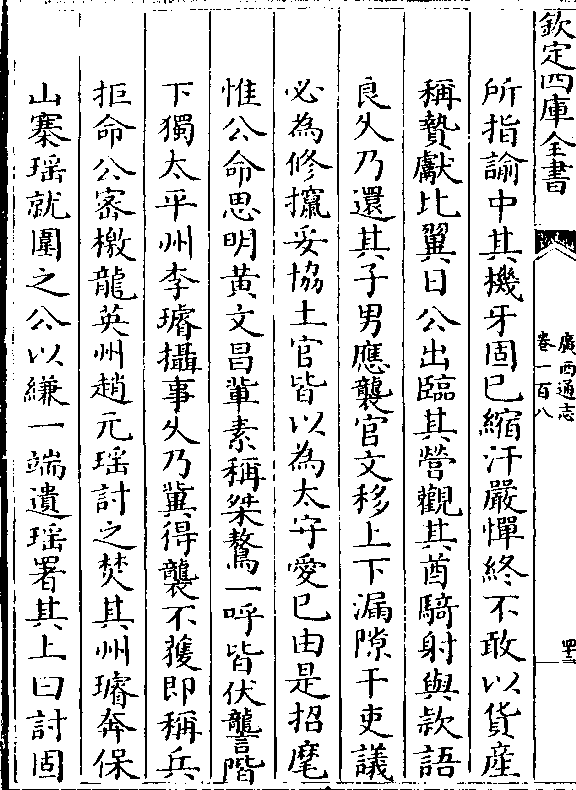 欽定四庫全書
廣西通志
卷一百八
所指諭中其機牙固已縮汗嚴憚終不敢以貨産
稱贄獻比翼日公出臨其營觀其酋騎射與欵語
良乆乃還其子男應襲官文移上下漏隙干吏議
必為修攛妥協土官皆以為太守愛已由是招麾
惟公命思明黃文昌輩素稱桀驁一呼皆伏讋階
下獨太平州李璿攝事乆乃兾得襲不獲即稱兵
拒命公宻檄龍英州趙元瑶討之焚其州璿奔保
山寨瑶就圍之公以縑一端遺瑶署其上曰討固